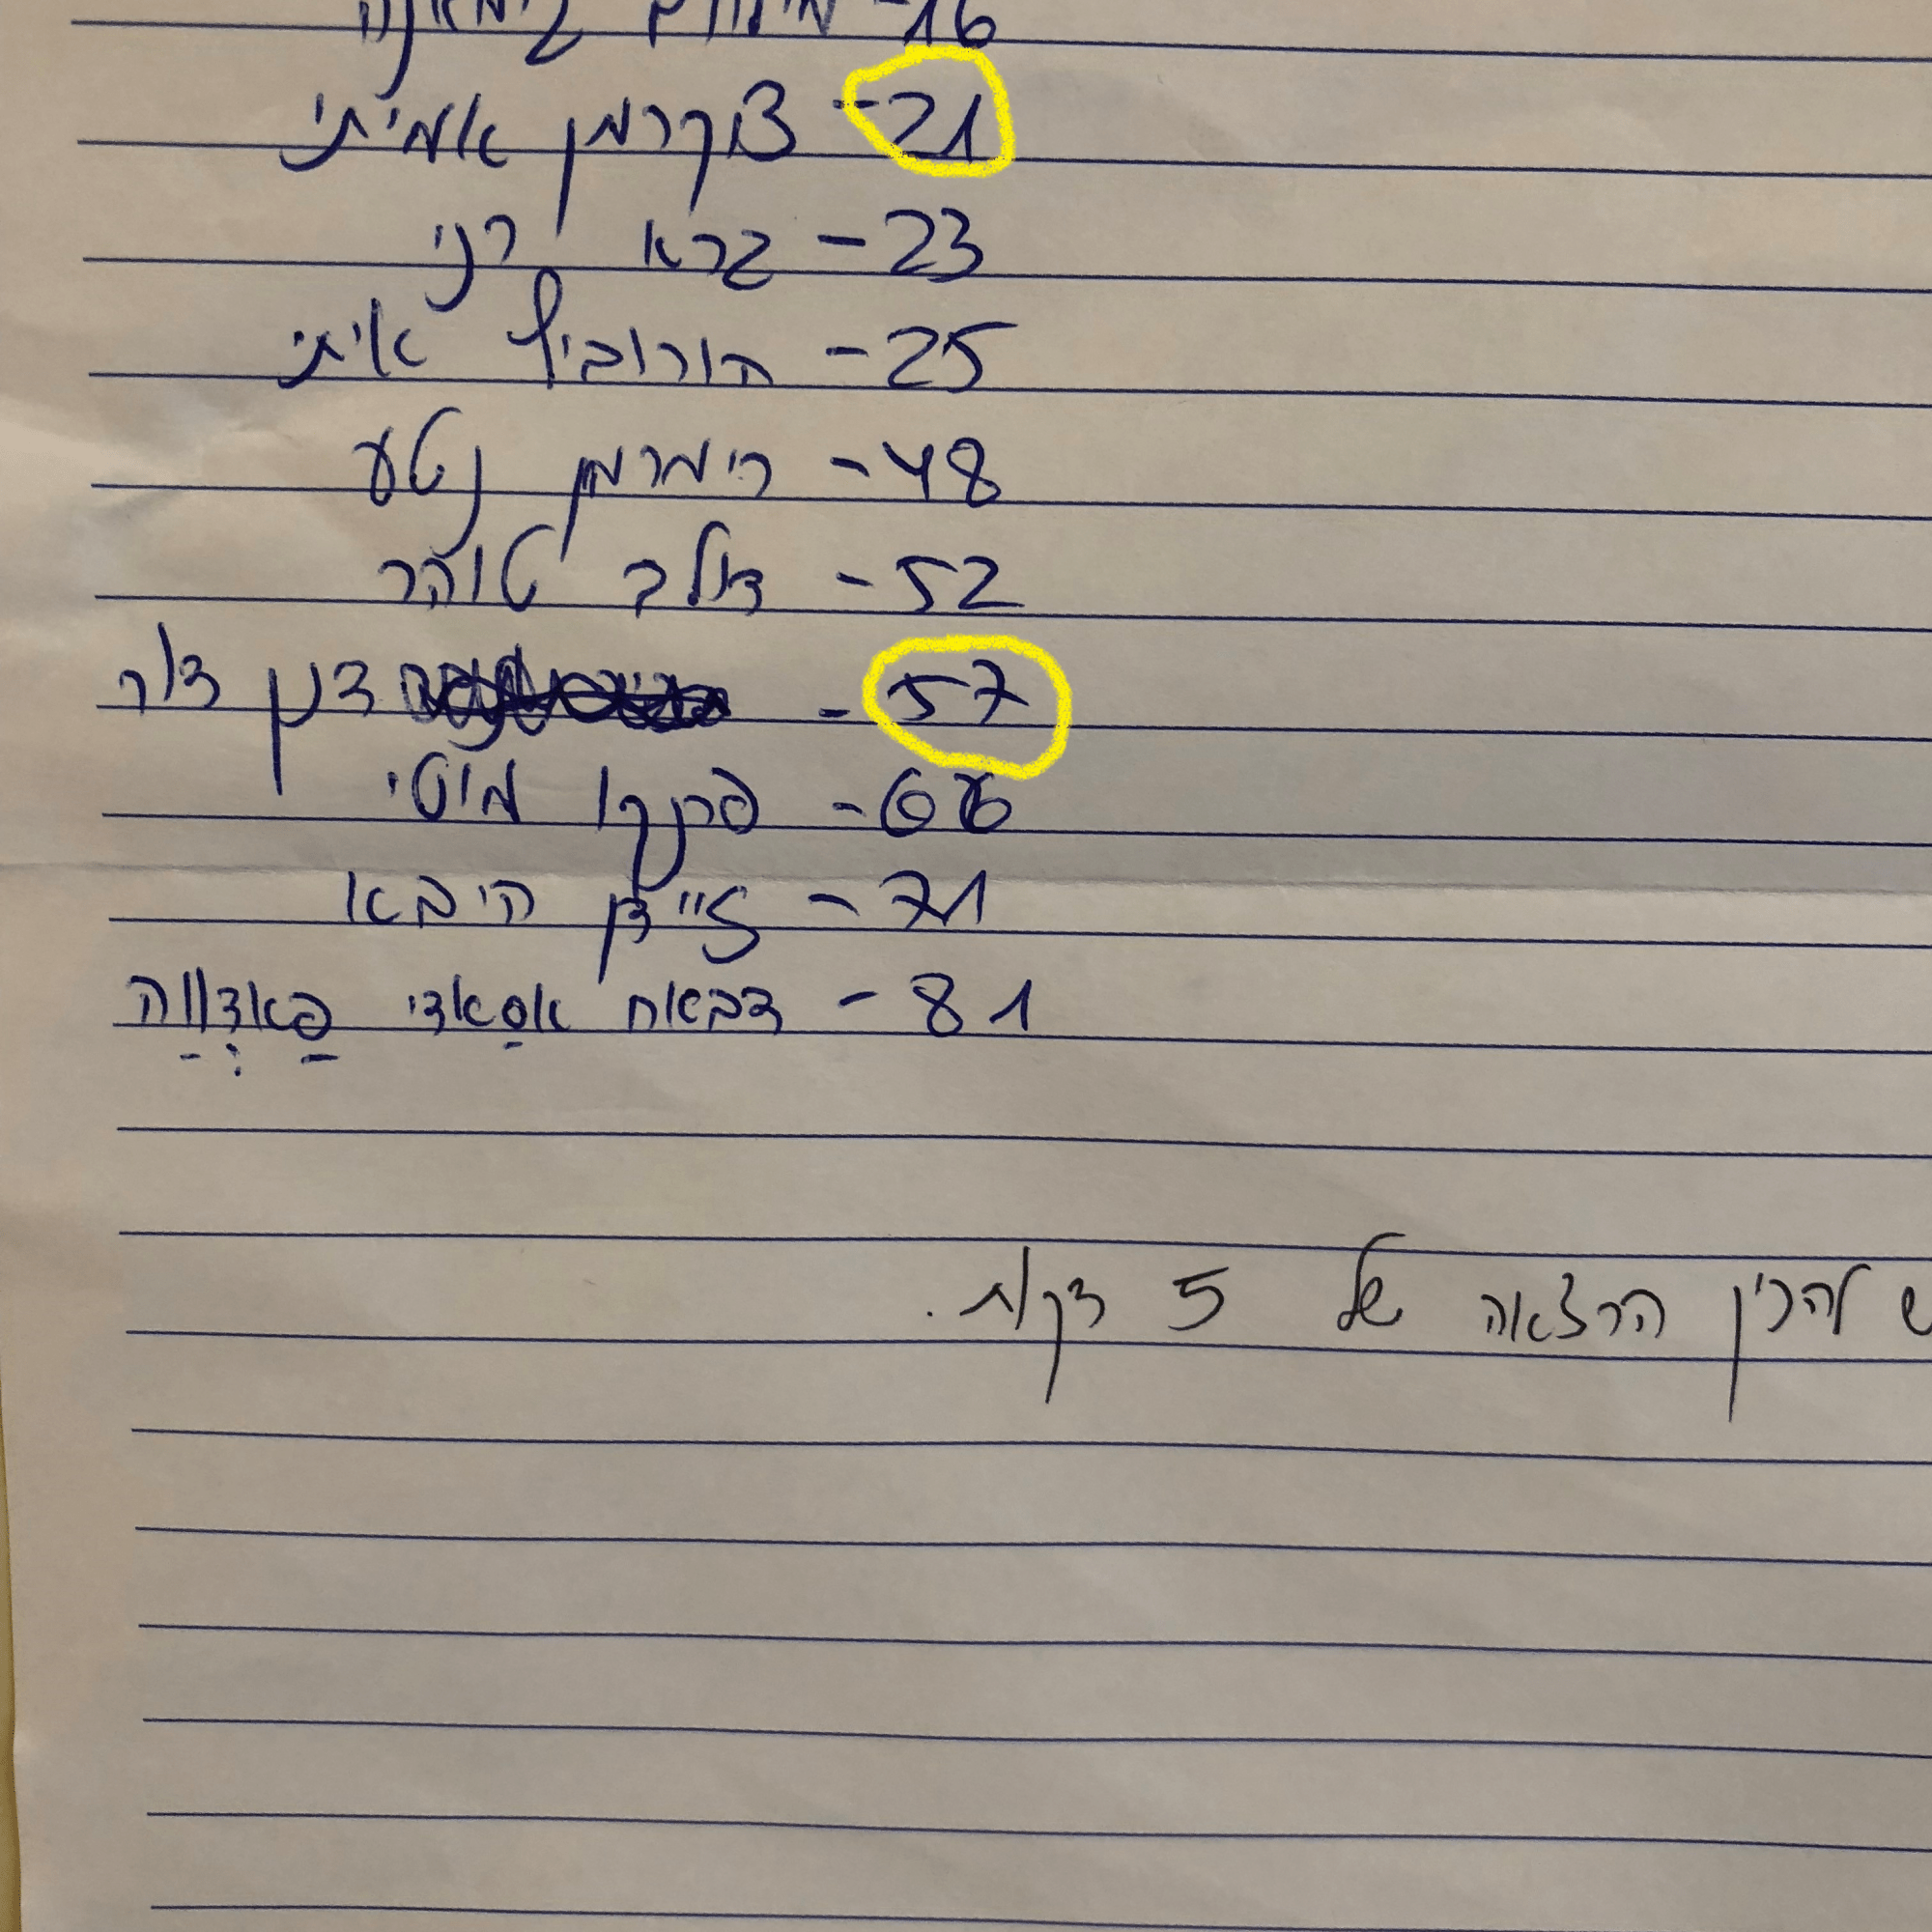 21- צוקרמן אמיתי
23 - ברא רני
25 - הורוביץ איתי
48 - רימרמן נטע
52 - דולב טוהר
57 - דנן דור
66 - פרנקו מוטי
71 - זיידן היבא
81 - דבאח אסַאדי פַאדְוַוה
להכין הרצאה של 5 דקות.